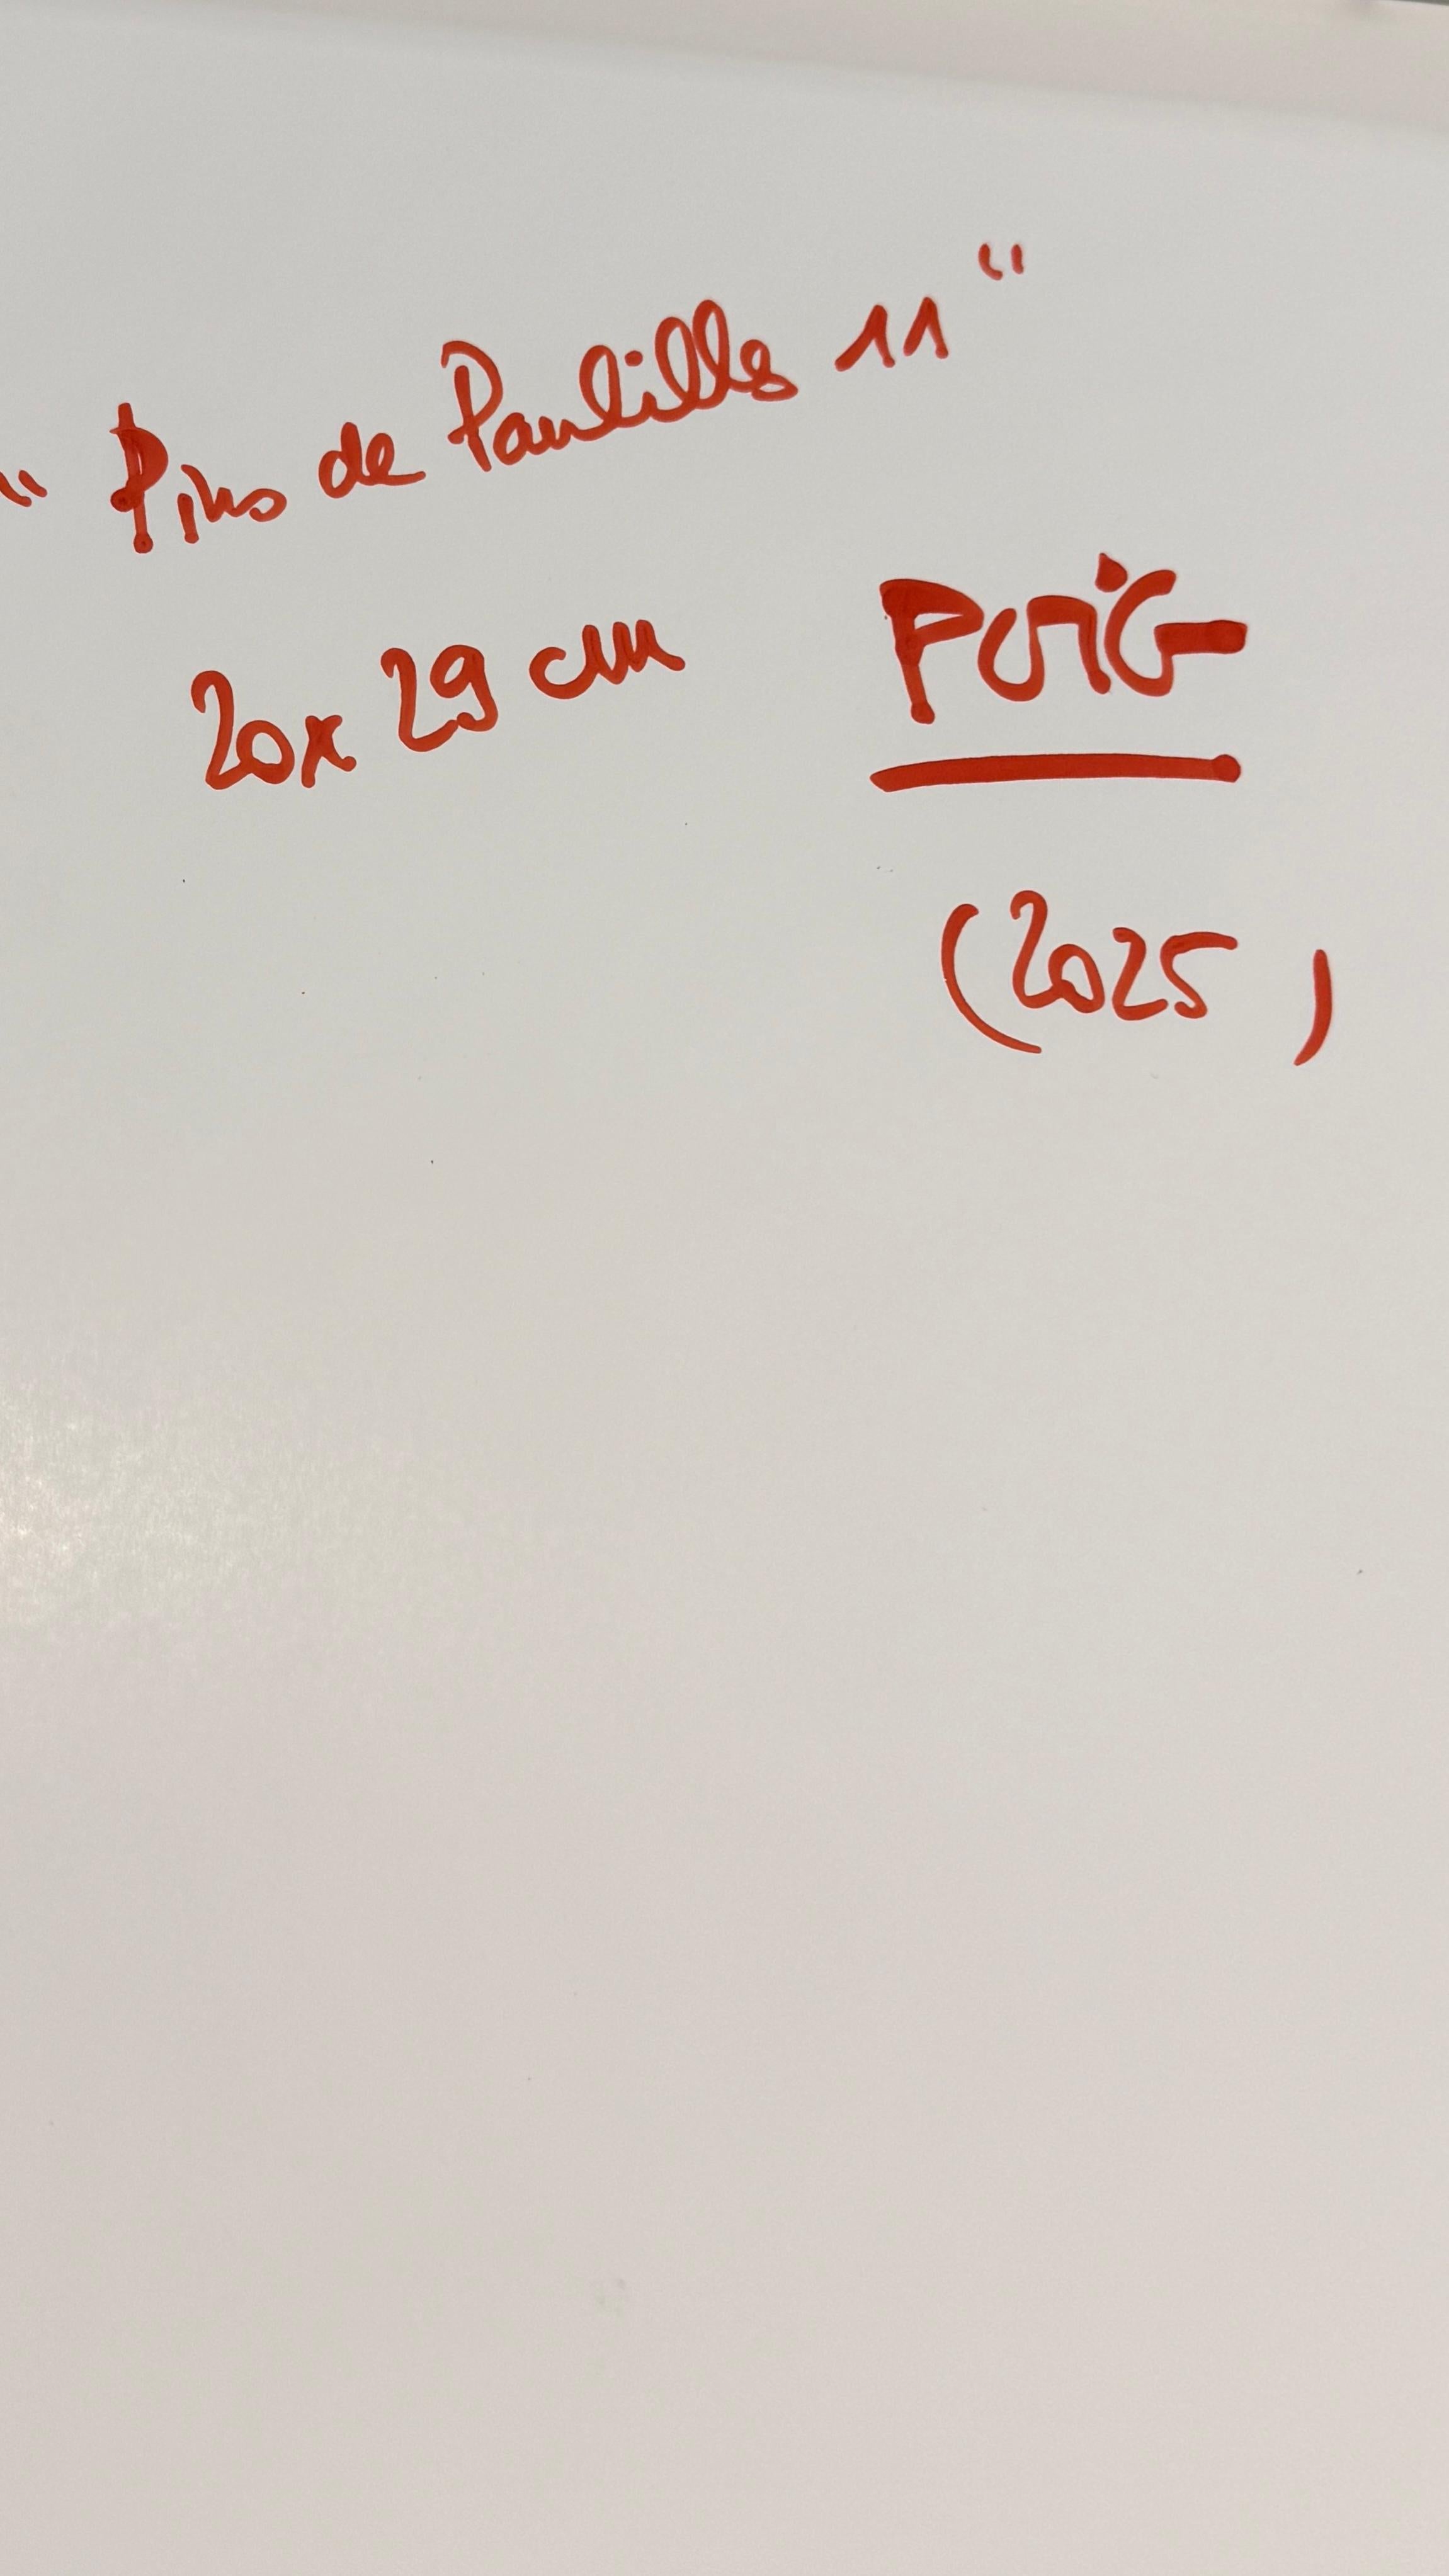 "Pins de Paulilles 11"
20x29 cm
PUIG
(2025)